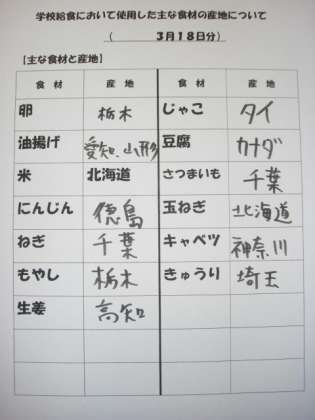 学校給食において使用した主な食材の産地について
( 3月18日分)
【主な食材と産地】
食材 産地 食材 産地
卵 栃木 じゃこ タイ
油揚げ 愛知、山形 豆腐 カナダ
米 北海道 さつまいも 千葉
にんじん 徳島 玉ねぎ 北海道
ねぎ 千葉 キャベツ 神奈川
もやし 栃木 きゅうり 埼玉
生姜 高知